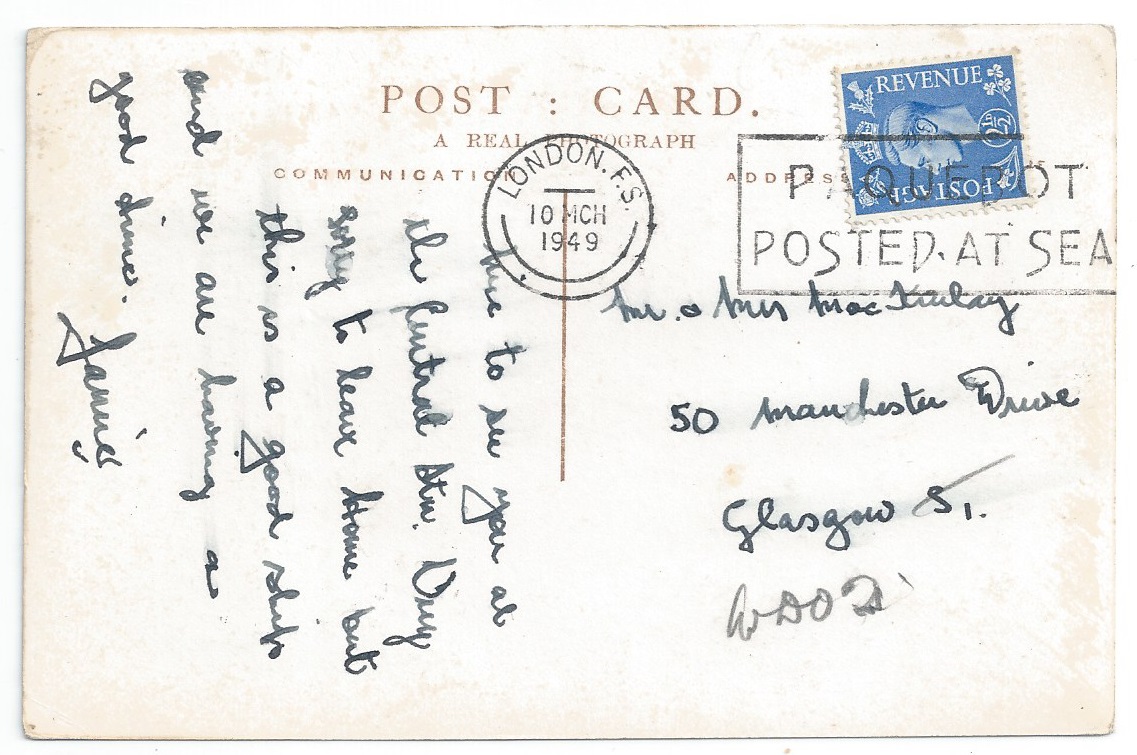 POST : CARD.
A REAL PHOTOGRAPH
COMMUNICATION
ADDRESS
REVENUE
2½D
POSTAGE
LONDON. F.S.
10 MCH
1949
PAQUEBOT
POSTED AT SEA
to see you at
the Central Stn. Very
sorry to leave Home but
this is a good ship
and we are having a
good time. James
Mr. & Mrs MacKinlay
50 Manchester Drive
Glasgow S1.